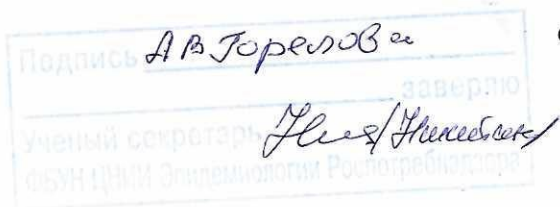 Подпись А В Горелова
заверяю
Ученый секретарь
ФБУН ЦНИИ Эпидемиологии Роспотребнадзора